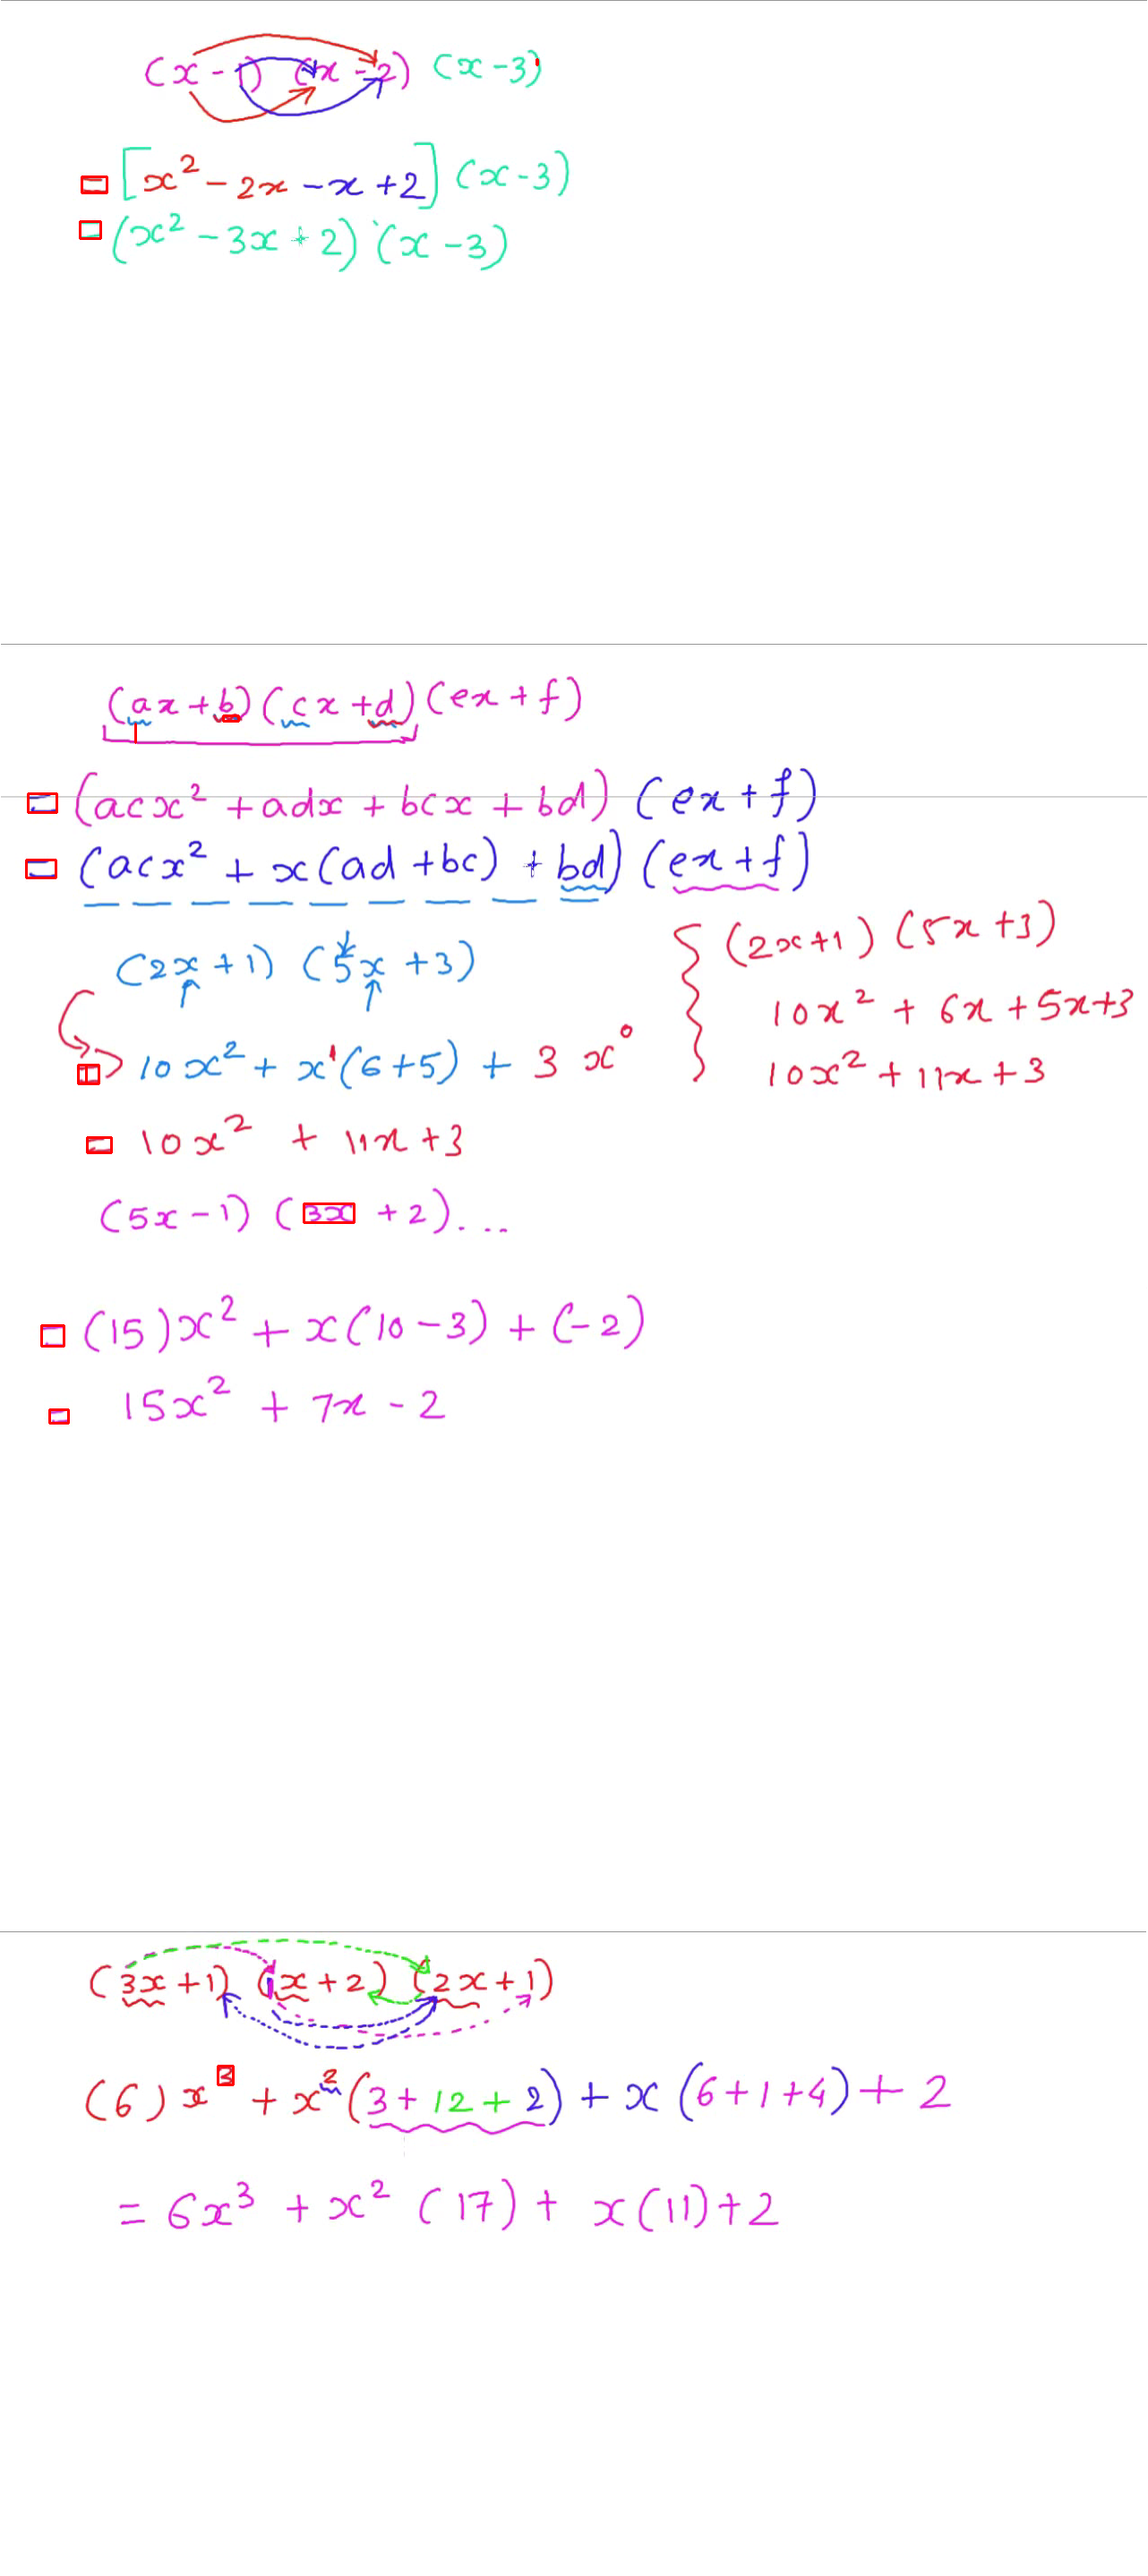 (x - 1) (x - 2) (x - 3)
= [x² - 2x - x + 2] (x - 3)
= (x² - 3x + 2) (x - 3)
(ax + b) (cx + d) (ex + f)
= (acx² + adx + bcx + bd) (ex + f)
= (acx² + x(ad + bc) + bd) (ex + f)
(2x + 1) (5x + 3)
= 10x² + x¹(6 + 5) + 3x⁰
= 10x² + 11x + 3
(2x + 1) (5x + 3)
10x² + 6x + 5x + 3
10x² + 11x + 3
(5x - 1) (3x + 2)...
= (15)x² + x(10 - 3) + (-2)
= 15x² + 7x - 2
(3x + 1) (x + 2) (2x + 1)
(6)x³ + x²(3 + 12 + 2) + x(6 + 1 + 4) + 2
= 6x³ + x² (17) + x(11) + 2